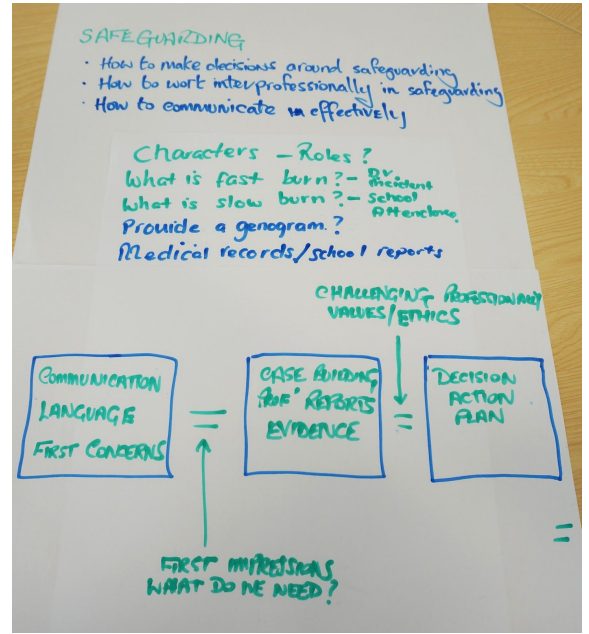 SAFEGUARDING
• How to make decisions around safeguarding
• How to work interprofessionally in safeguarding
• How to communicate effectively
Characters – Roles?
What is fast burn? – D.V. incident
What is slow burn? – School Attendance
Provide a genogram?
Medical records/school reports
CHALLENGING PROFESSIONALLY
VALUES/ETHICS
COMMUNICATION
LANGUAGE
FIRST CONCERNS
=
CASE BUILDING
PROF' REPORTS
EVIDENCE
=
DECISION
ACTION
PLAN
=
FIRST IMPRESSIONS
WHAT DO WE NEED?